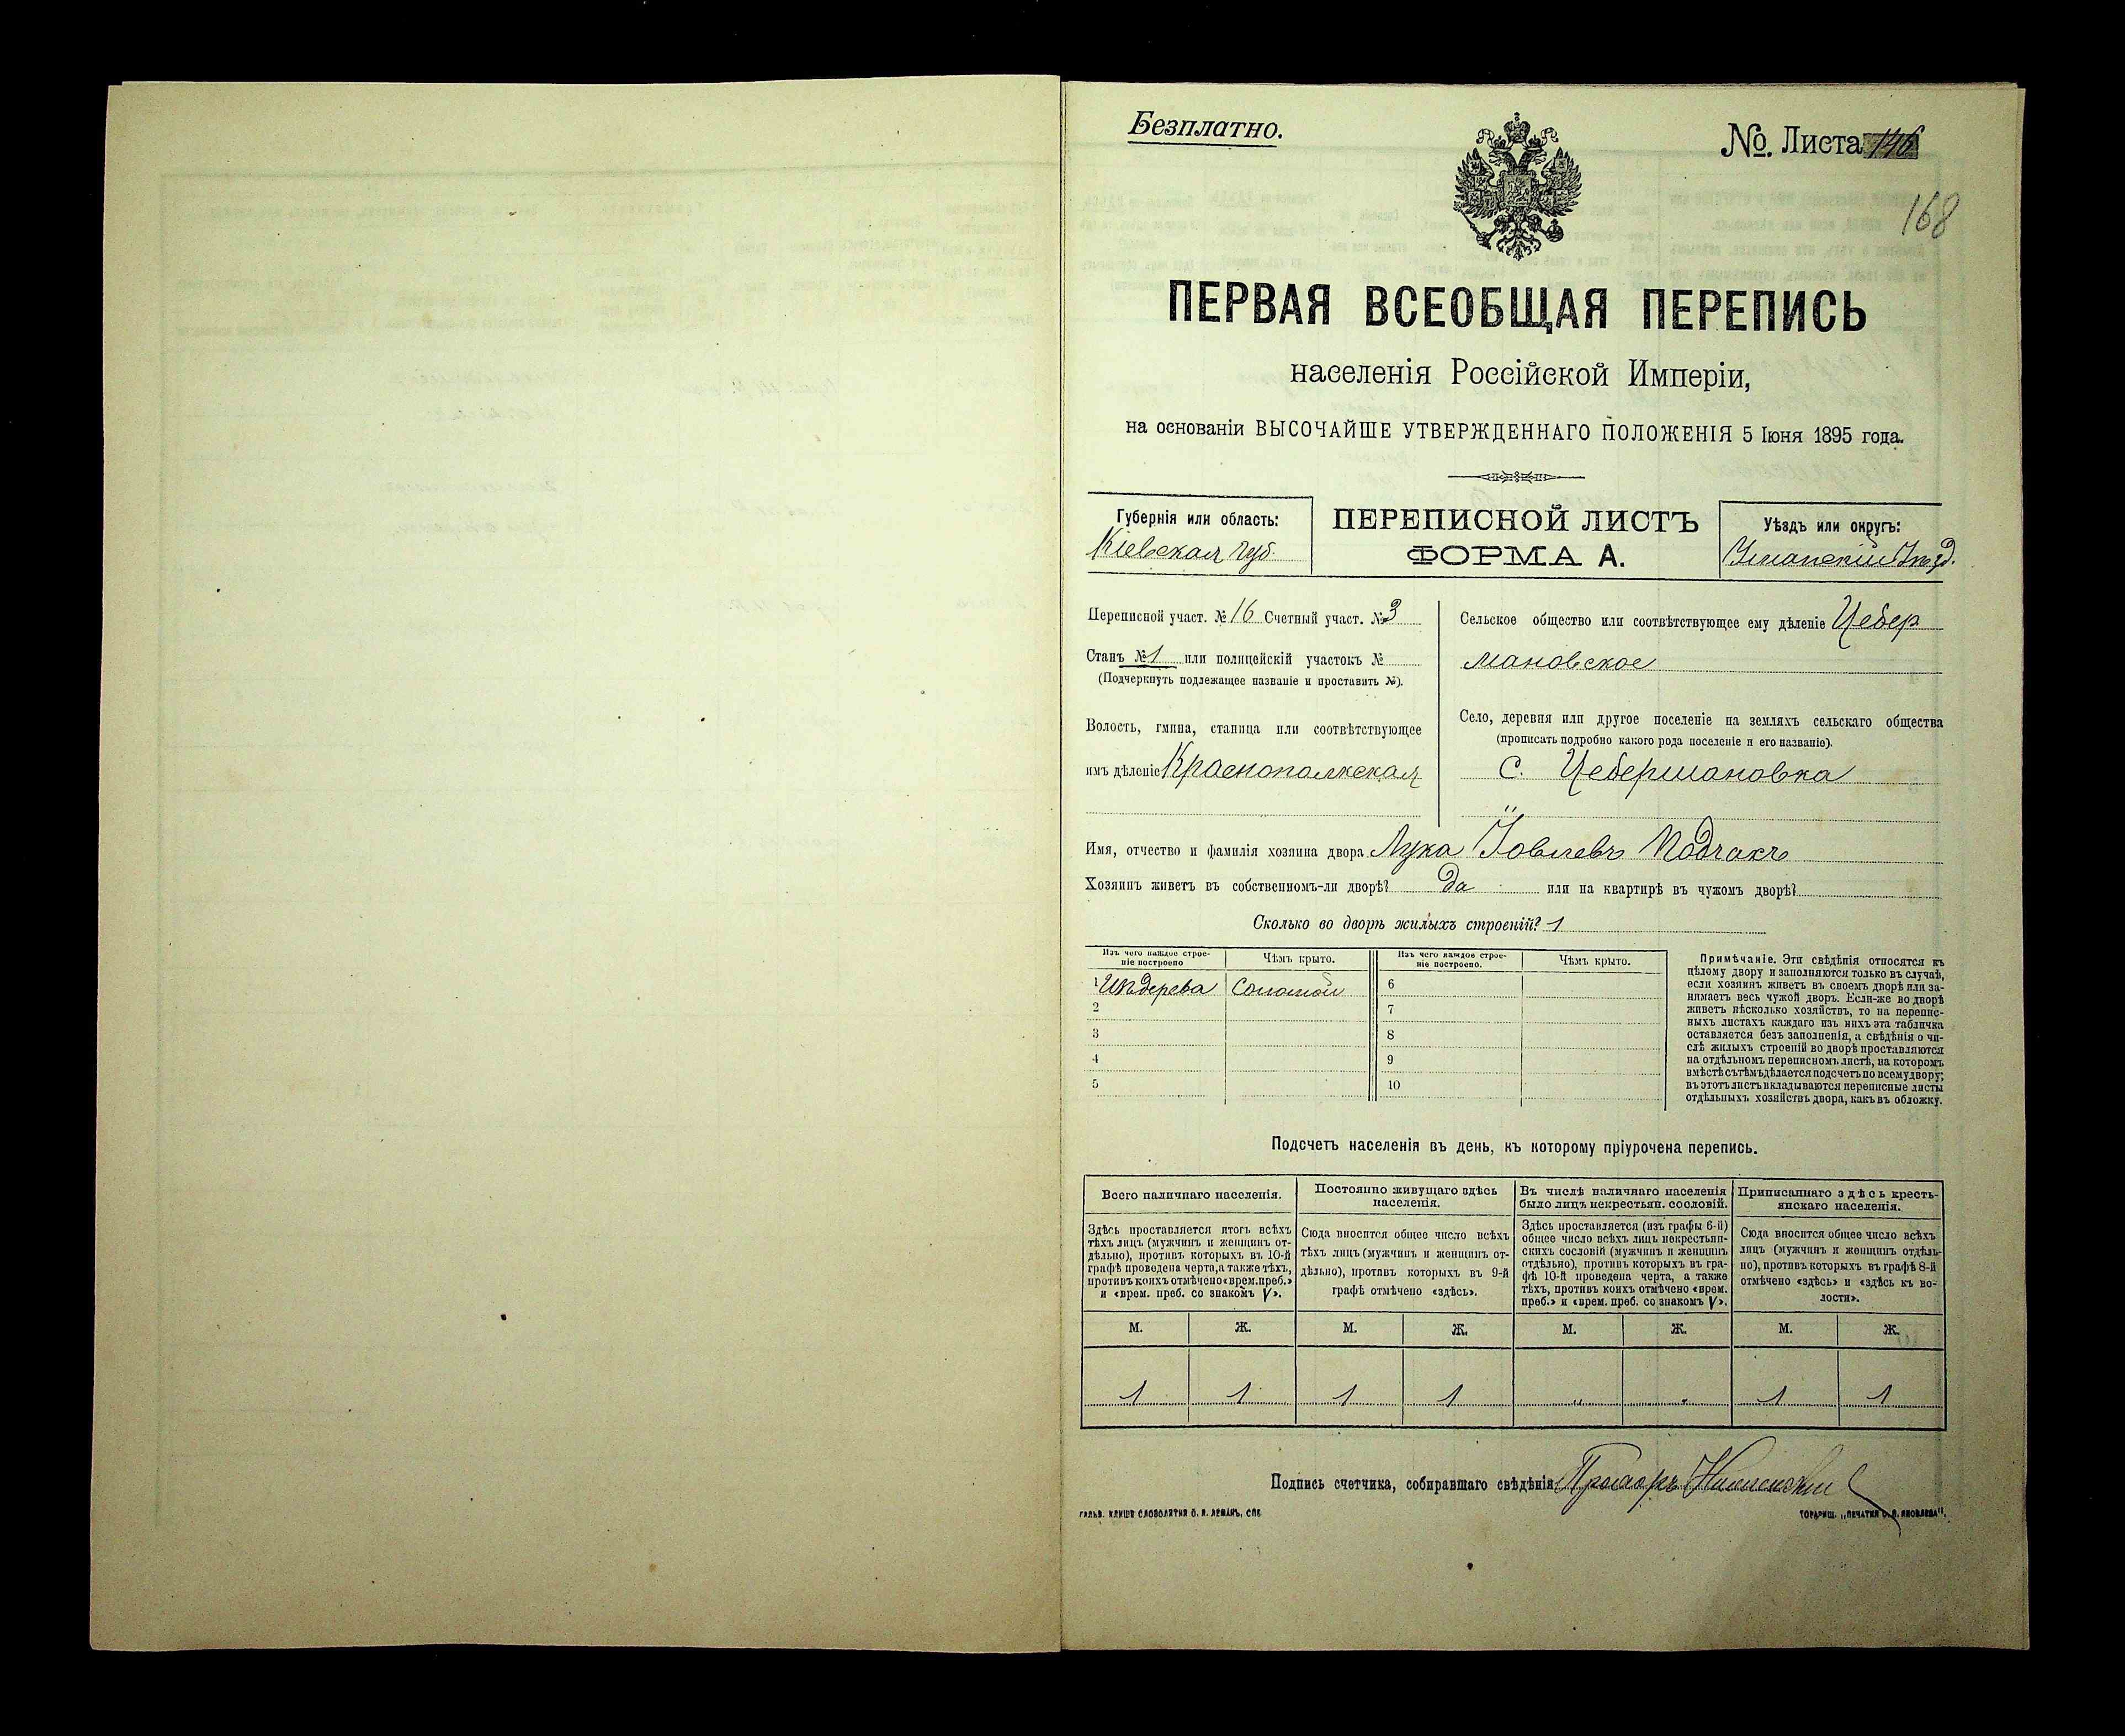 Безплатно.
№ Листа 146
168
ПЕРВАЯ ВСЕОБЩАЯ ПЕРЕПИСЬ
населенія Россійской Имперіи,
на основаніи ВЫСОЧАЙШЕ УТВЕРЖДЕННАГО ПОЛОЖЕНІЯ 5 Іюня 1895 года.
Губернія или область:
Кіевская губ.
ПЕРЕПИСНОЙ ЛИСТЪ
ФОРМА А.
Уѣздъ или округъ:
Уманскій Уѣзд.
Переписной участ. № 16 Счетный участ. № 3
Станъ № 1 или полицейскій участокъ №
(Подчеркнуть подлежащее названіе и проставить №).
Волость, гмина, станица или соотвѣтствующее
имъ дѣленіе Краснополкская
Сельское общество или соотвѣтствующее ему дѣленіе Цебер
мановское
Село, деревня или другое поселеніе на земляхъ сельскаго общества
(прописать подробно какого рода поселеніе и его названіе).
с. Цебермановка
Имя, отчество и фамилія хозяина двора Лука Іовлевъ Подчакъ
Хозяинъ живетъ въ собственномъ-ли дворѣ? да или на квартирѣ въ чужомъ дворѣ?
Сколько во дворѣ жилыхъ строеній? 1
Изъ чего каждое строе-
ніе построено
Чѣмъ крыто.
Изъ чего каждое строе-
ніе построено.
Чѣмъ крыто.
1 Изъ дерева Соломой 6
2 7
3 8
4 9
5 10
Примѣчаніе. Эти свѣдѣнія относятся къ
цѣлому двору и заполняются только въ случаѣ,
если хозяинъ живетъ въ своемъ дворѣ или за-
нимаетъ весь чужой дворъ. Если-же во дворѣ
живетъ нѣсколько хозяйствъ, то на перепис-
ныхъ листахъ каждаго изъ нихъ эта табличка
оставляется безъ заполненія, а свѣдѣнія о чи-
слѣ жилыхъ строеній во дворѣ проставляются
на отдѣльномъ переписномъ листѣ, на которомъ
вмѣстѣ съ тѣмъ дѣлается подсчетъ по всему двору;
въ этотъ листъ вкладываются переписные листы
отдѣльныхъ хозяйствъ двора, какъ въ обложку.
Подсчетъ населенія въ день, къ которому пріурочена перепись.
Всего наличнаго населенія.
Здѣсь проставляется итогъ всѣхъ
тѣхъ лицъ (мужчинъ и женщинъ от-
дѣльно), противъ которыхъ въ 10-й
графѣ проведена черта, а также тѣхъ,
противъ коихъ отмѣчено «врем. преб.»
и «врем. преб. со знакомъ V».
Постоянно живущаго здѣсь
населенія.
Сюда вносится общее число всѣхъ
тѣхъ лицъ (мужчинъ и женщинъ от-
дѣльно), противъ которыхъ въ 9-й
графѣ отмѣчено «здѣсь».
Въ числѣ наличнаго населенія
было лицъ некрестьян. сословій.
Здѣсь проставляется (изъ графы 6-й)
общее число всѣхъ лицъ некрестьян-
скихъ сословій (мужчинъ и женщинъ
отдѣльно), противъ которыхъ въ гра-
фѣ 10-й проведена черта, а также
тѣхъ, противъ коихъ отмѣчено «врем.
преб.» и «врем. преб. со знакомъ V».
Приписаннаго здѣсь кресть-
янскаго населенія.
Сюда вносится общее число всѣхъ
лицъ (мужчинъ и женщинъ отдѣль-
но), противъ которыхъ въ графѣ 8-й
отмѣчено «здѣсь» и «здѣсь къ во-
лости».
М. Ж. М. Ж. М. Ж. М. Ж.
1 1 1 1 " " 1 1
Подпись счетчика, собиравшаго свѣдѣнія
ГАЛЬВ. КЛИШЕ СЛОВОЛИТНИ О. И. ЛЕМАНЪ, СПБ
ТОВАРИЩ. „ПЕЧАТНЯ С. П. ЯКОВЛЕВА".